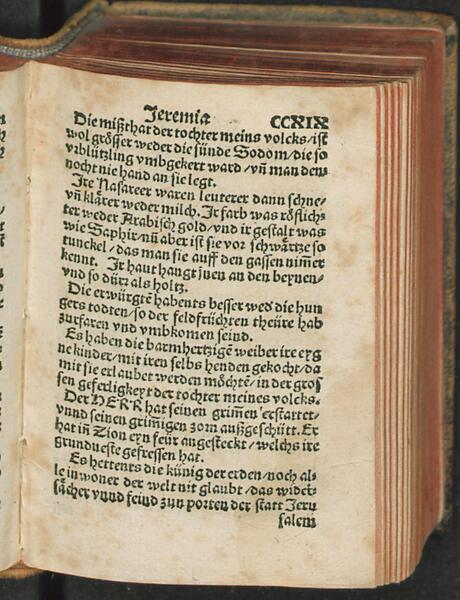 Jeremia CCXIX
Die mißthat der tochter meins volcks / ist
wol grösser weder die sünde Sodom / die so
vrblützling vmbgekert ward / vñ man dem
nocht nie hand an sie legt.
Jre Nasareer waren leuterer dann schne /
vñ klärer weder milch. Jr farb was röslich
ter weder Arabisch gold / vnd ir gestalt was
wie Saphir / nũ aber ist sie vor schwärtze so
tunckel / das man sie auff den gassen nim̃er
kennt. Jr haut hangt jnen an den beynen /
vnd so dürr als holtz.
Die erwürgtẽ habents besser wed die hun
gers todten / so der feldfrüchten theüre hab
zurfaren vnd vmbkomen seind.
Es haben die barmhertzigẽ weiber ire eyg
ne kinder / mit iren selbs henden gekocht / da
mit sie erlaubet werden möchtẽ / in der gros
sen geferligkeyt der tochter meines volcks.
Der HERR hat seinen grim̃en erstattet /
vnnd seinen grimigen zorn außgeschütt. Er
hat in Zion eyn feür angesteckt / welchs ire
grundueste gefressen hat.
Es hettents die künig der erden / noch al
le inwoner der welt nit glaubt / das wider
sächer vnnd feind zun porten der statt Jeru
salem